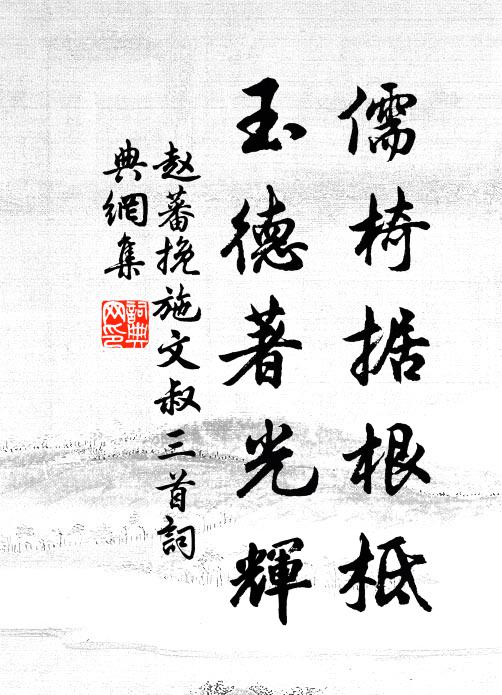 儒椅据根柢
玉德著光輝
赵蕃挽施文叔三首詞
典網集
詞典网印